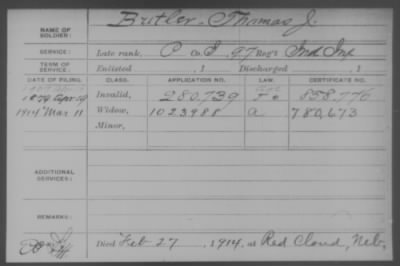 NAME OF SOLDIER: Butler, Thomas J.
SERVICE: Late rank, P Co. I, 97 Reg't Ind Inf
TERM OF SERVICE: Enlisted , 1 Discharged , 1
DATE OF FILING. CLASS. APPLICATION NO. LAW. CERTIFICATE NO.
1879 Apr 19 Invalid, 280,739 858,776
1914 Mar 11 Widow, 1023988 a 780,673
Minor,
ADDITIONAL SERVICES:
REMARKS:
Died Feb 27, 1914, at Red Cloud, Neb,